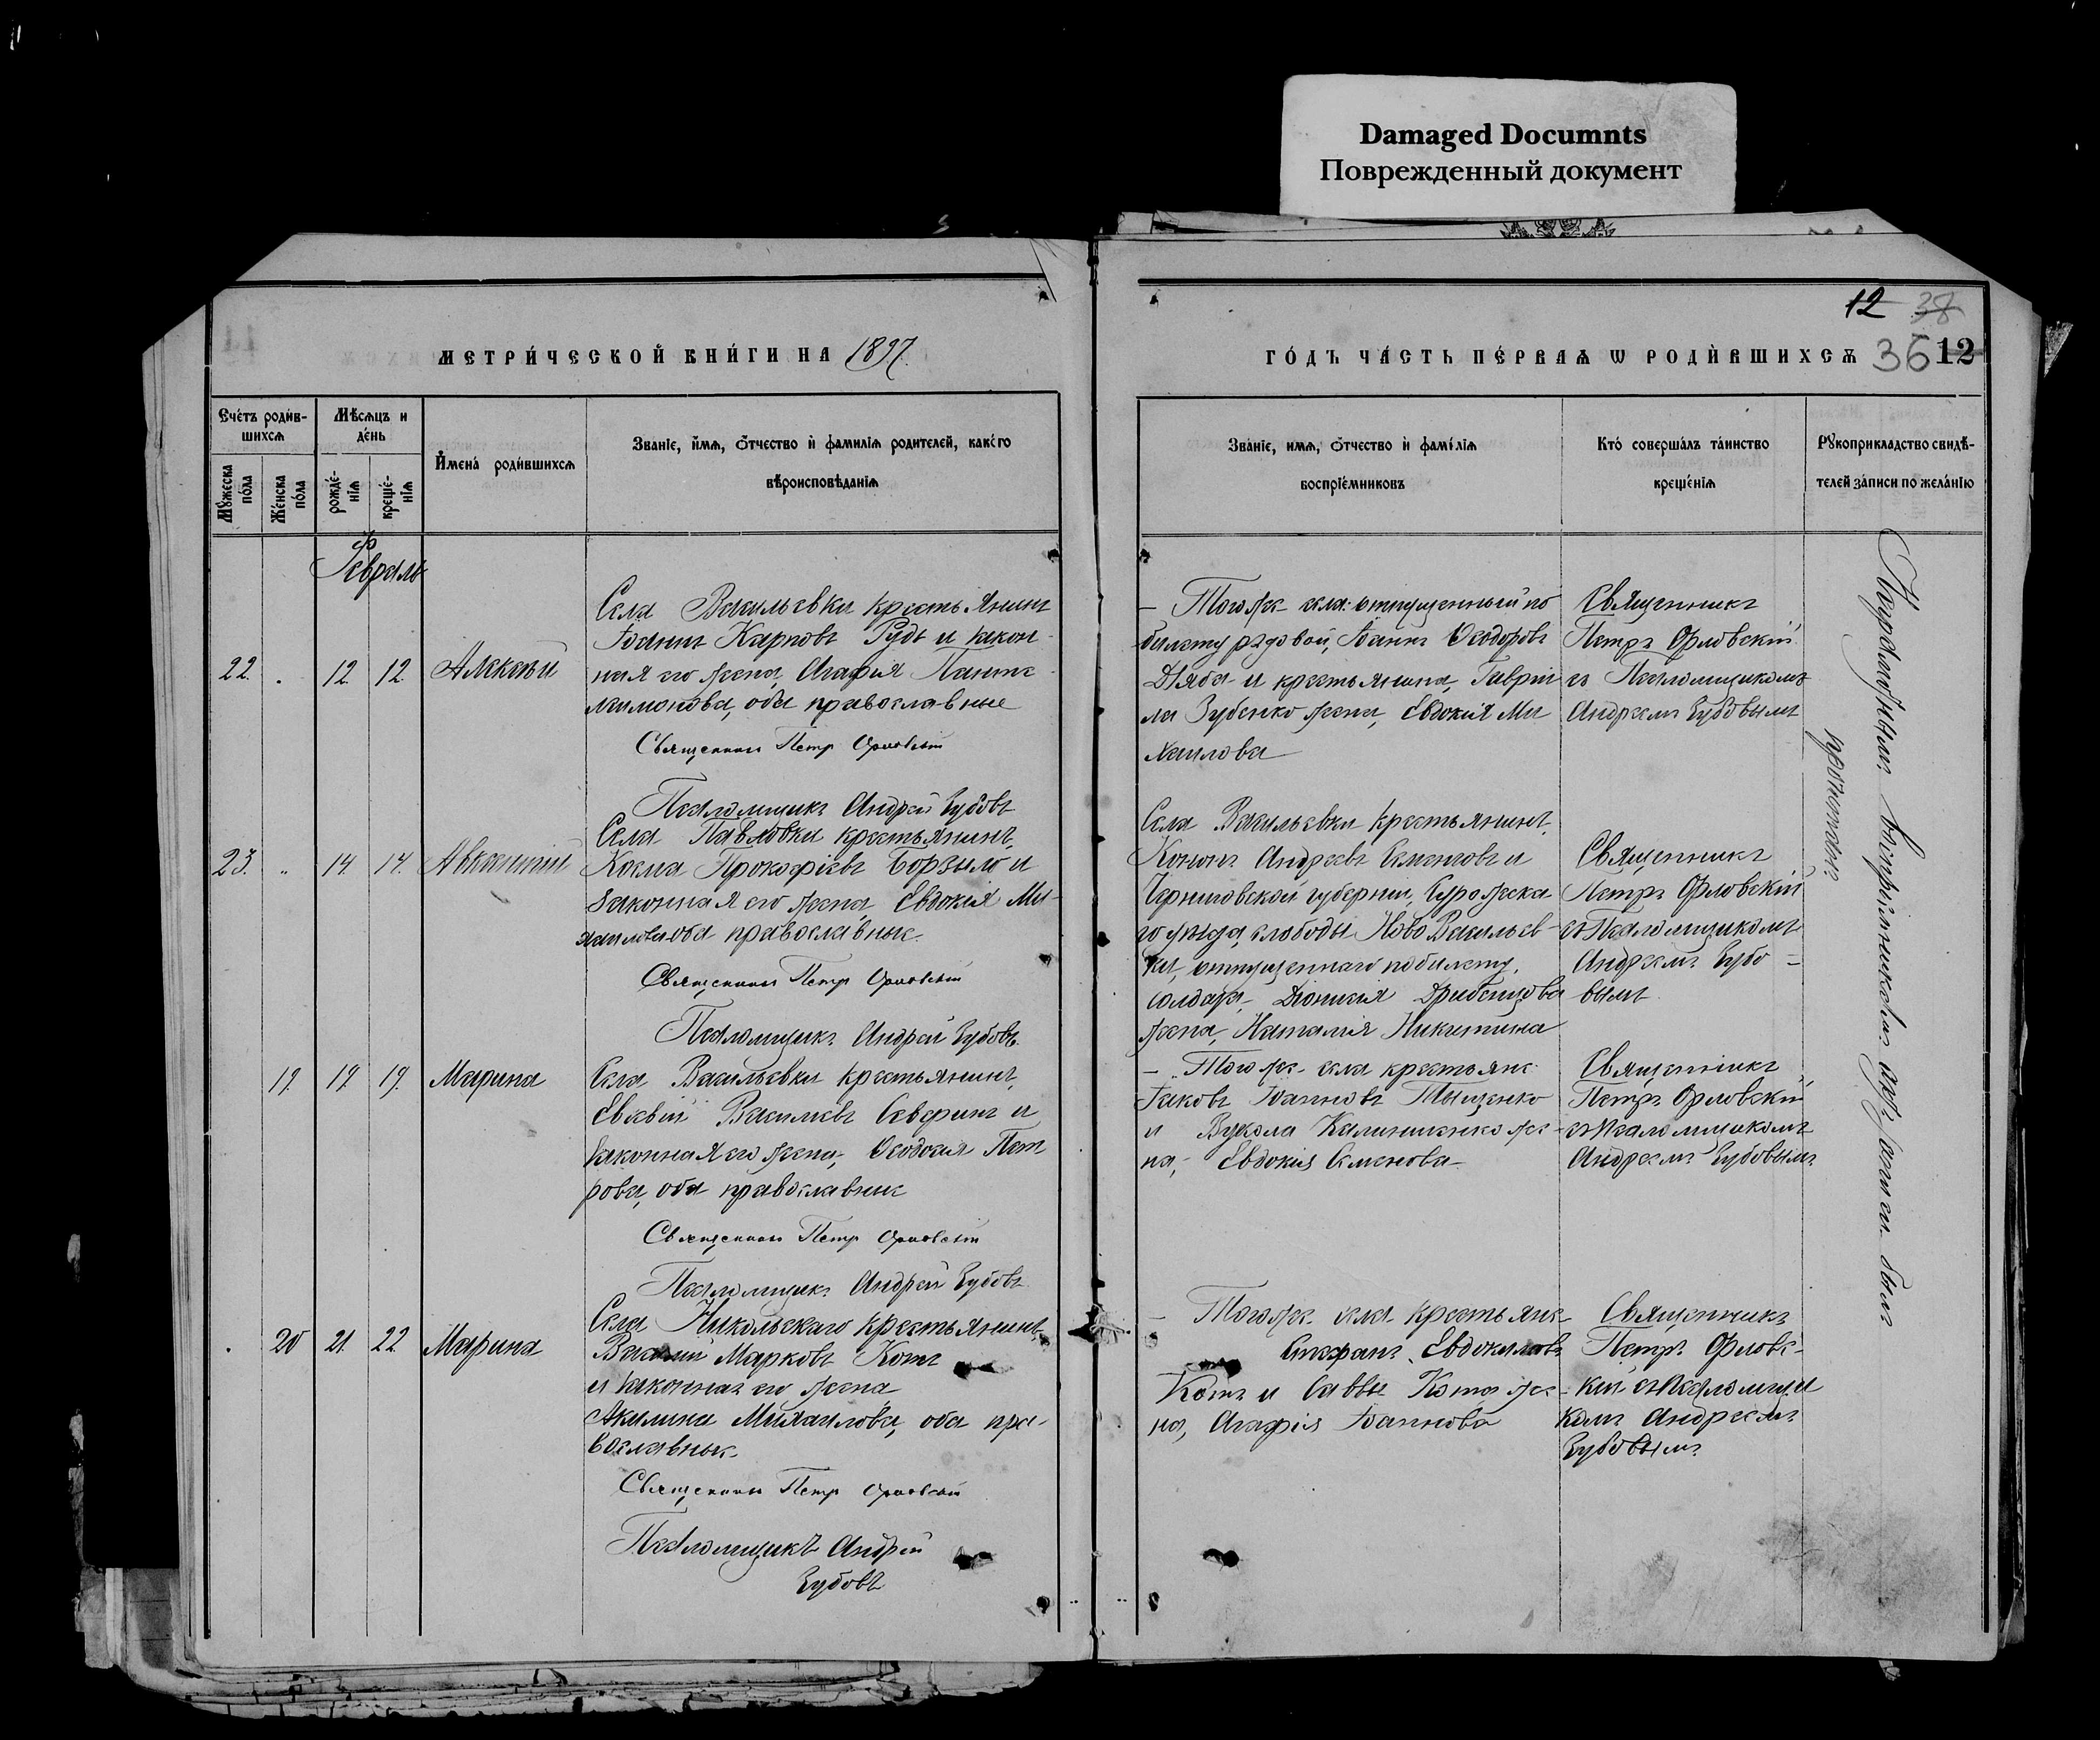 Damaged Documnts
Поврежденный документ
12 38
МЕТРИ́ЧЕСКОЙ КНИ́ГИ НА 1897.
ГО́ДЪ ЧА́СТЬ ПЕ́РВАѦ Ѡ РОДИ́ВШИХСѦ 36 12
Счётъ роди́в-
шихсѧ
Мужеска по́ла
Же́нска по́ла
Мѣ́сѧцъ и де́нь
рожде́-нїѧ
креще́-нїѧ
Имена́ роди́вшихсѧ
Званїе, имѧ, отчество и фамилїѧ родителей, како́го
вѣроисповѣданїѧ
Званїе, имѧ, отчество и фамилїѧ
воспрїемниковъ
Кто́ соверша́лъ та́инство
креще́нїѧ
Рукоприкладство свидѣ-
телей за́писи по жела́нїю
Февраль
22. . 12 12 Алексѣй
Села Васильевки крестьянинъ
Іоаннъ Карповъ Рудь и закон
ная его жена, Агафія Панте
леимонова, оба православные
Священникъ Петр Орловскій
Псаломщикъ Андрей Зубовъ
– Того же села отпущенный по
билету рядовой, Іоаннъ Ѳеодоровъ
Дзяба и крестьянина, Гаврiи
ла Зубенко жена, Евдокія Ми
хаилова
Священникъ
Петръ Орловскій
съ Псаломщикомъ
Андреемъ Зубовымъ
23. „ 14 14. Авксентій
Села Павловки крестьянинъ,
Косма Прокофіевъ Борзыло и
законная его жена, Евдокія Ми-
хаилова оба православные.
Священникъ Петр Орловскій
Псаломщикъ Андрей Зубовъ.
Села Васильевки крестьянинъ,
Кононъ Андреевъ и
Черниговской губерніи,
го уѣзда, слободы Ново Васильев-
ки, отпущеннаго по билету,
солдата, Діонисія
жена, Наталія Никитина
Священникъ
Петръ Орловскій
съ Псаломщикомъ
Андреемъ Зубо-
вымъ
19 19 19. Марина
Села Васильевки крестьянинъ,
Евсевій Васильевъ Северинъ и
законная его жена, Ѳеодосія Пет
рова, оба православные
Священникъ Петр Орловскій
Псаломщикъ Андрей Зубовъ
– Того же села крестьяне
Іаковъ Іоанновъ Тыщенко
и Вукола Калиниченко же-
на, Евдокія Семенова
Священникъ
Петръ Орловскій
съ Псаломщикомъ
Андреемъ Зубовымъ
. 20 21 22 Марина
Села Никольскаго крестьянинъ,
Василій Марковъ Котъ
и законная его жена
Акилина Михаилова, оба пра-
вославные
Священникъ Петр Орловскій
Псаломщикъ Андрей
Зубовъ
– Того же села крестьяне
Стефанъ Евдокимовъ
Котъ и Саввы Кота же-
на, Агафія Іоаннова
Священникъ
Петръ Орловс-
кій съ Псаломщи
комъ Андреемъ
Зубовымъ